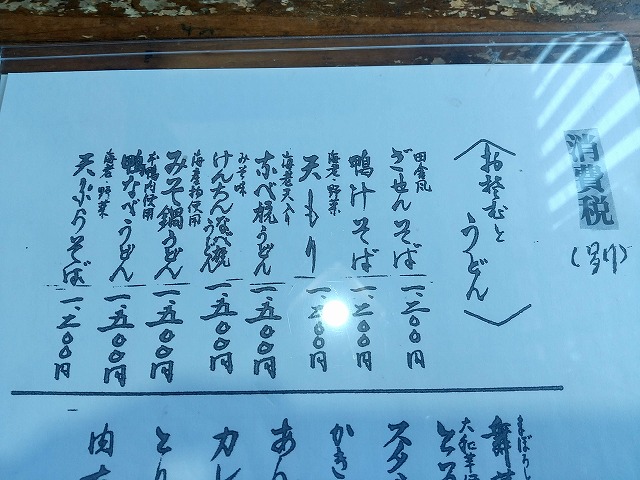 消費税
(別)
うどん
田舎風
ぎせんそば 一、二〇〇円
鴨汁そば 一、二〇〇円
海老・野菜
天もり 一、二〇〇円
海老天入り
なべ焼うどん 一、五〇〇円
みそ味
けんちんなべ焼うどん 一、五〇〇円
海老
使用
みそ鍋うどん 一、五〇〇円
本鴨肉使用
鴨なべうどん 一、五〇〇円
海老・野菜
天ぷらそば 一、二〇〇円
まぼろし
舞
大和芋
とろ
スタ
かき
あん
カレ
とり
肉